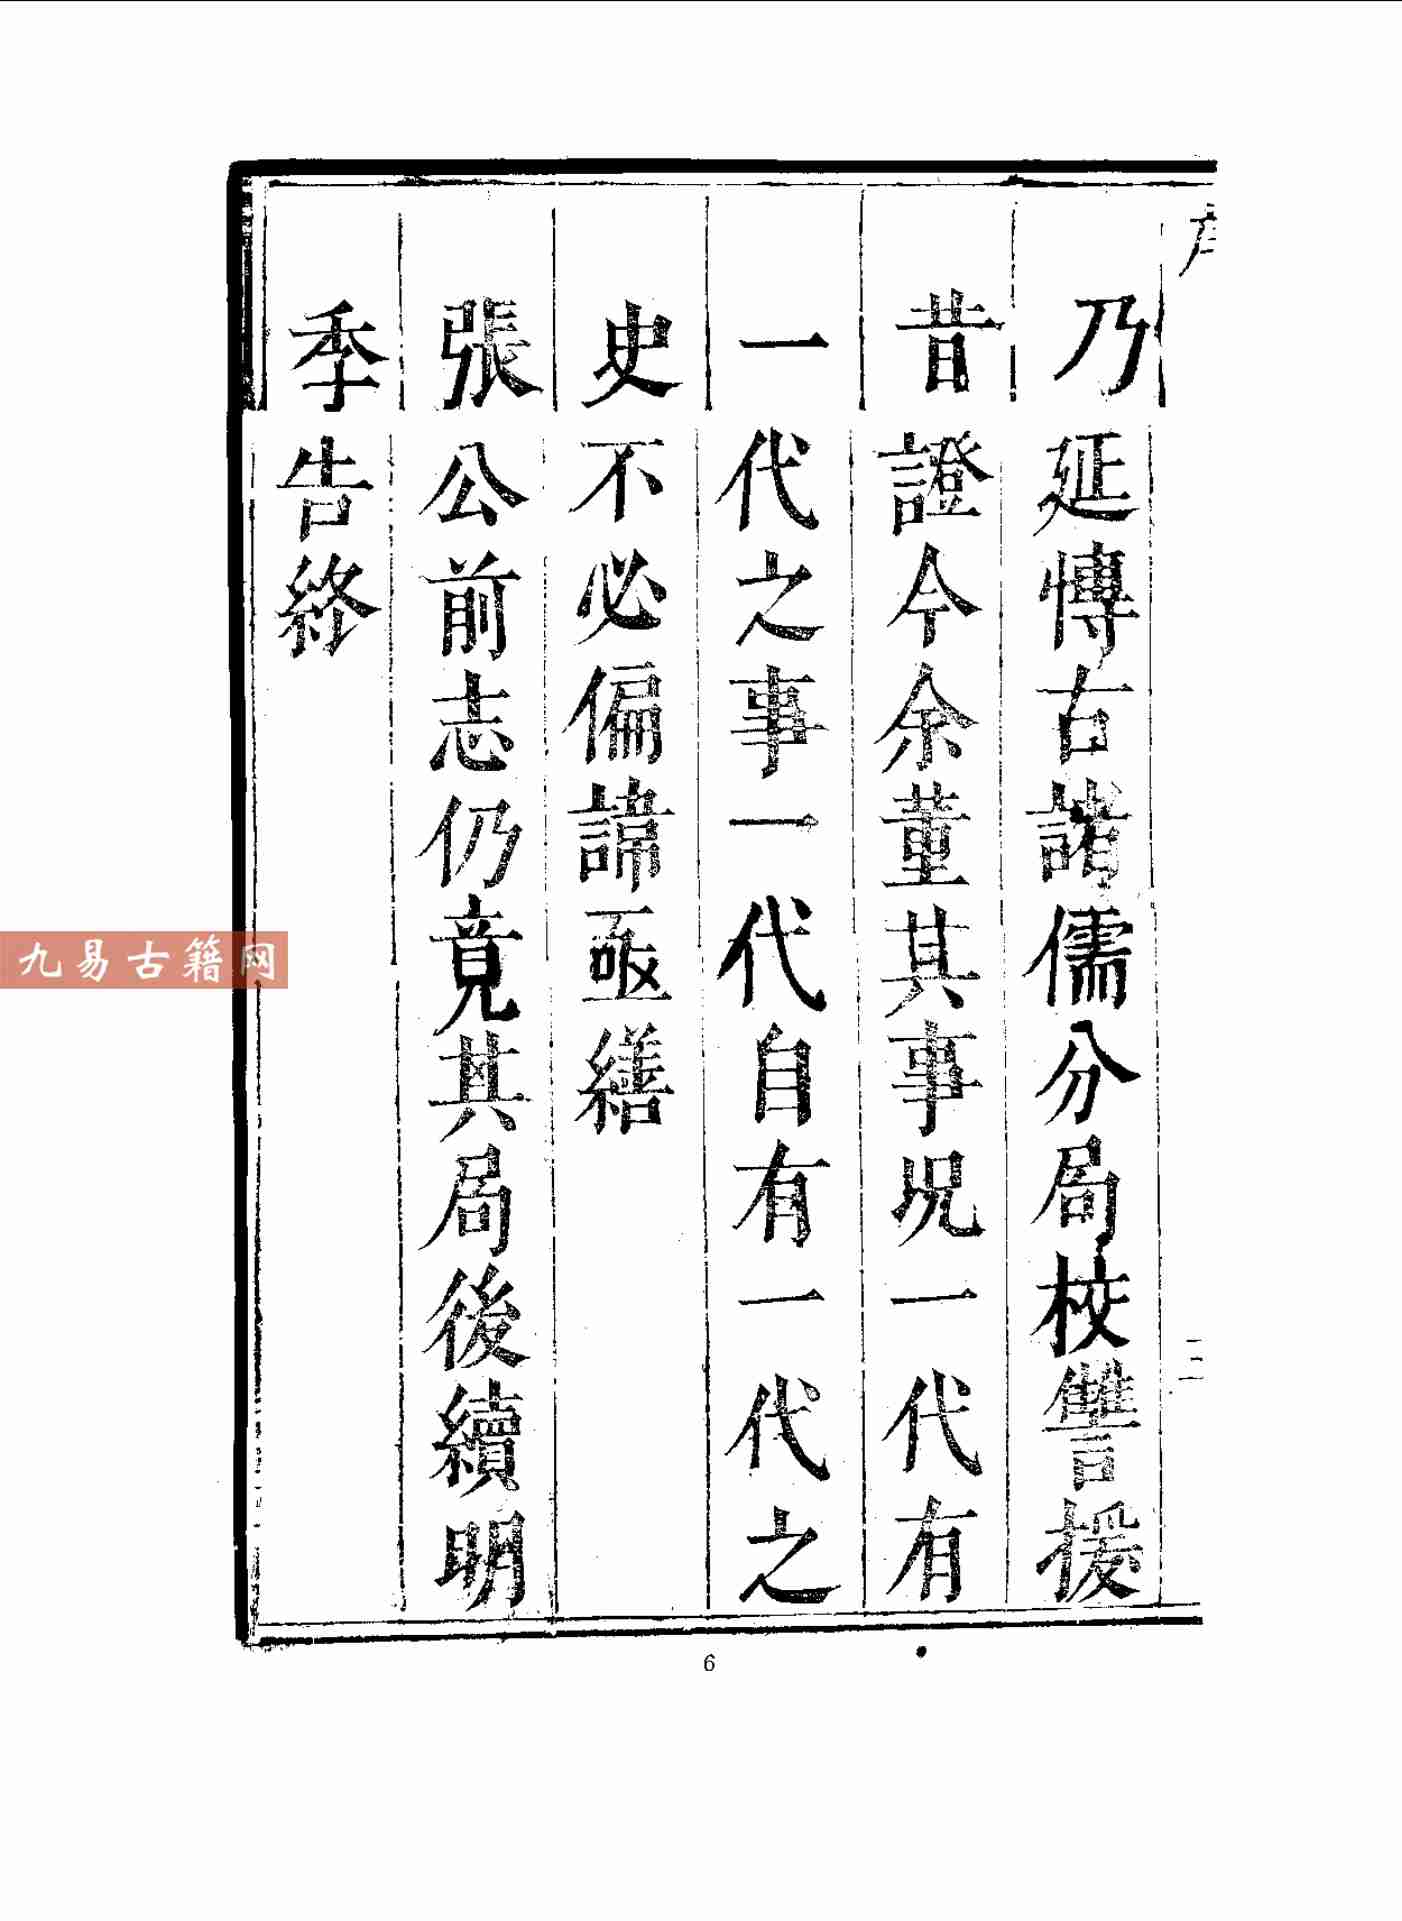 乃延慱古諸儒分局校讐援
昔證今余董其事况一代有
一代之事一代自有一代之
史不必偏諱亟繕
張公前志仍竟其局後續明
季告終
二
九易古籍网
6